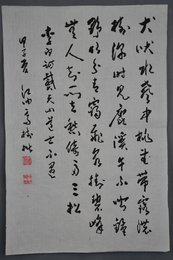 犬吠水聲中桃花帶露濃
樹深時見鹿溪午不聞鐘
野竹分青靄飛泉掛碧峰
無人知所去愁倚兩三松
李白訪戴天山道士不遇
甲子夏